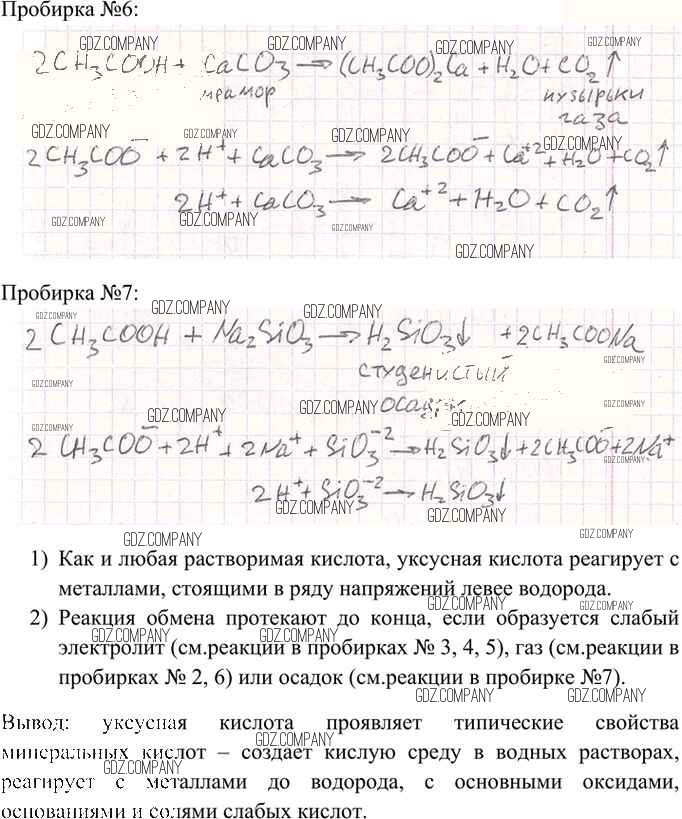 Пробирка №6:
2CH₃COOH + CaCO₃ → (CH₃COO)₂Ca + H₂O + CO₂↑
мрамор пузырьки
газа
2CH₃COO⁻ + 2H⁺ + CaCO₃ → 2CH₃COO⁻ + Ca⁺² + H₂O + CO₂↑
2H⁺ + CaCO₃ → Ca⁺² + H₂O + CO₂↑
Пробирка №7:
2CH₃COOH + Na₂SiO₃ → H₂SiO₃↓ + 2CH₃COONa
студенистый
осадок
2CH₃COO⁻ + 2H⁺ + 2Na⁺ + SiO₃⁻² → H₂SiO₃↓ + 2CH₃COO⁻ + 2Na⁺
2H⁺ + SiO₃⁻² → H₂SiO₃↓
1) Как и любая растворимая кислота, уксусная кислота реагирует с
металлами, стоящими в ряду напряжений левее водорода.
2) Реакция обмена протекают до конца, если образуется слабый
электролит (см.реакции в пробирках № 3, 4, 5), газ (см.реакции в
пробирках № 2, 6) или осадок (см.реакции в пробирке №7).
Вывод: уксусная кислота проявляет типические свойства
минеральных кислот – создает кислую среду в водных растворах,
реагирует с металлами до водорода, с основными оксидами,
основаниями и солями слабых кислот.
GDZ.COMPANY